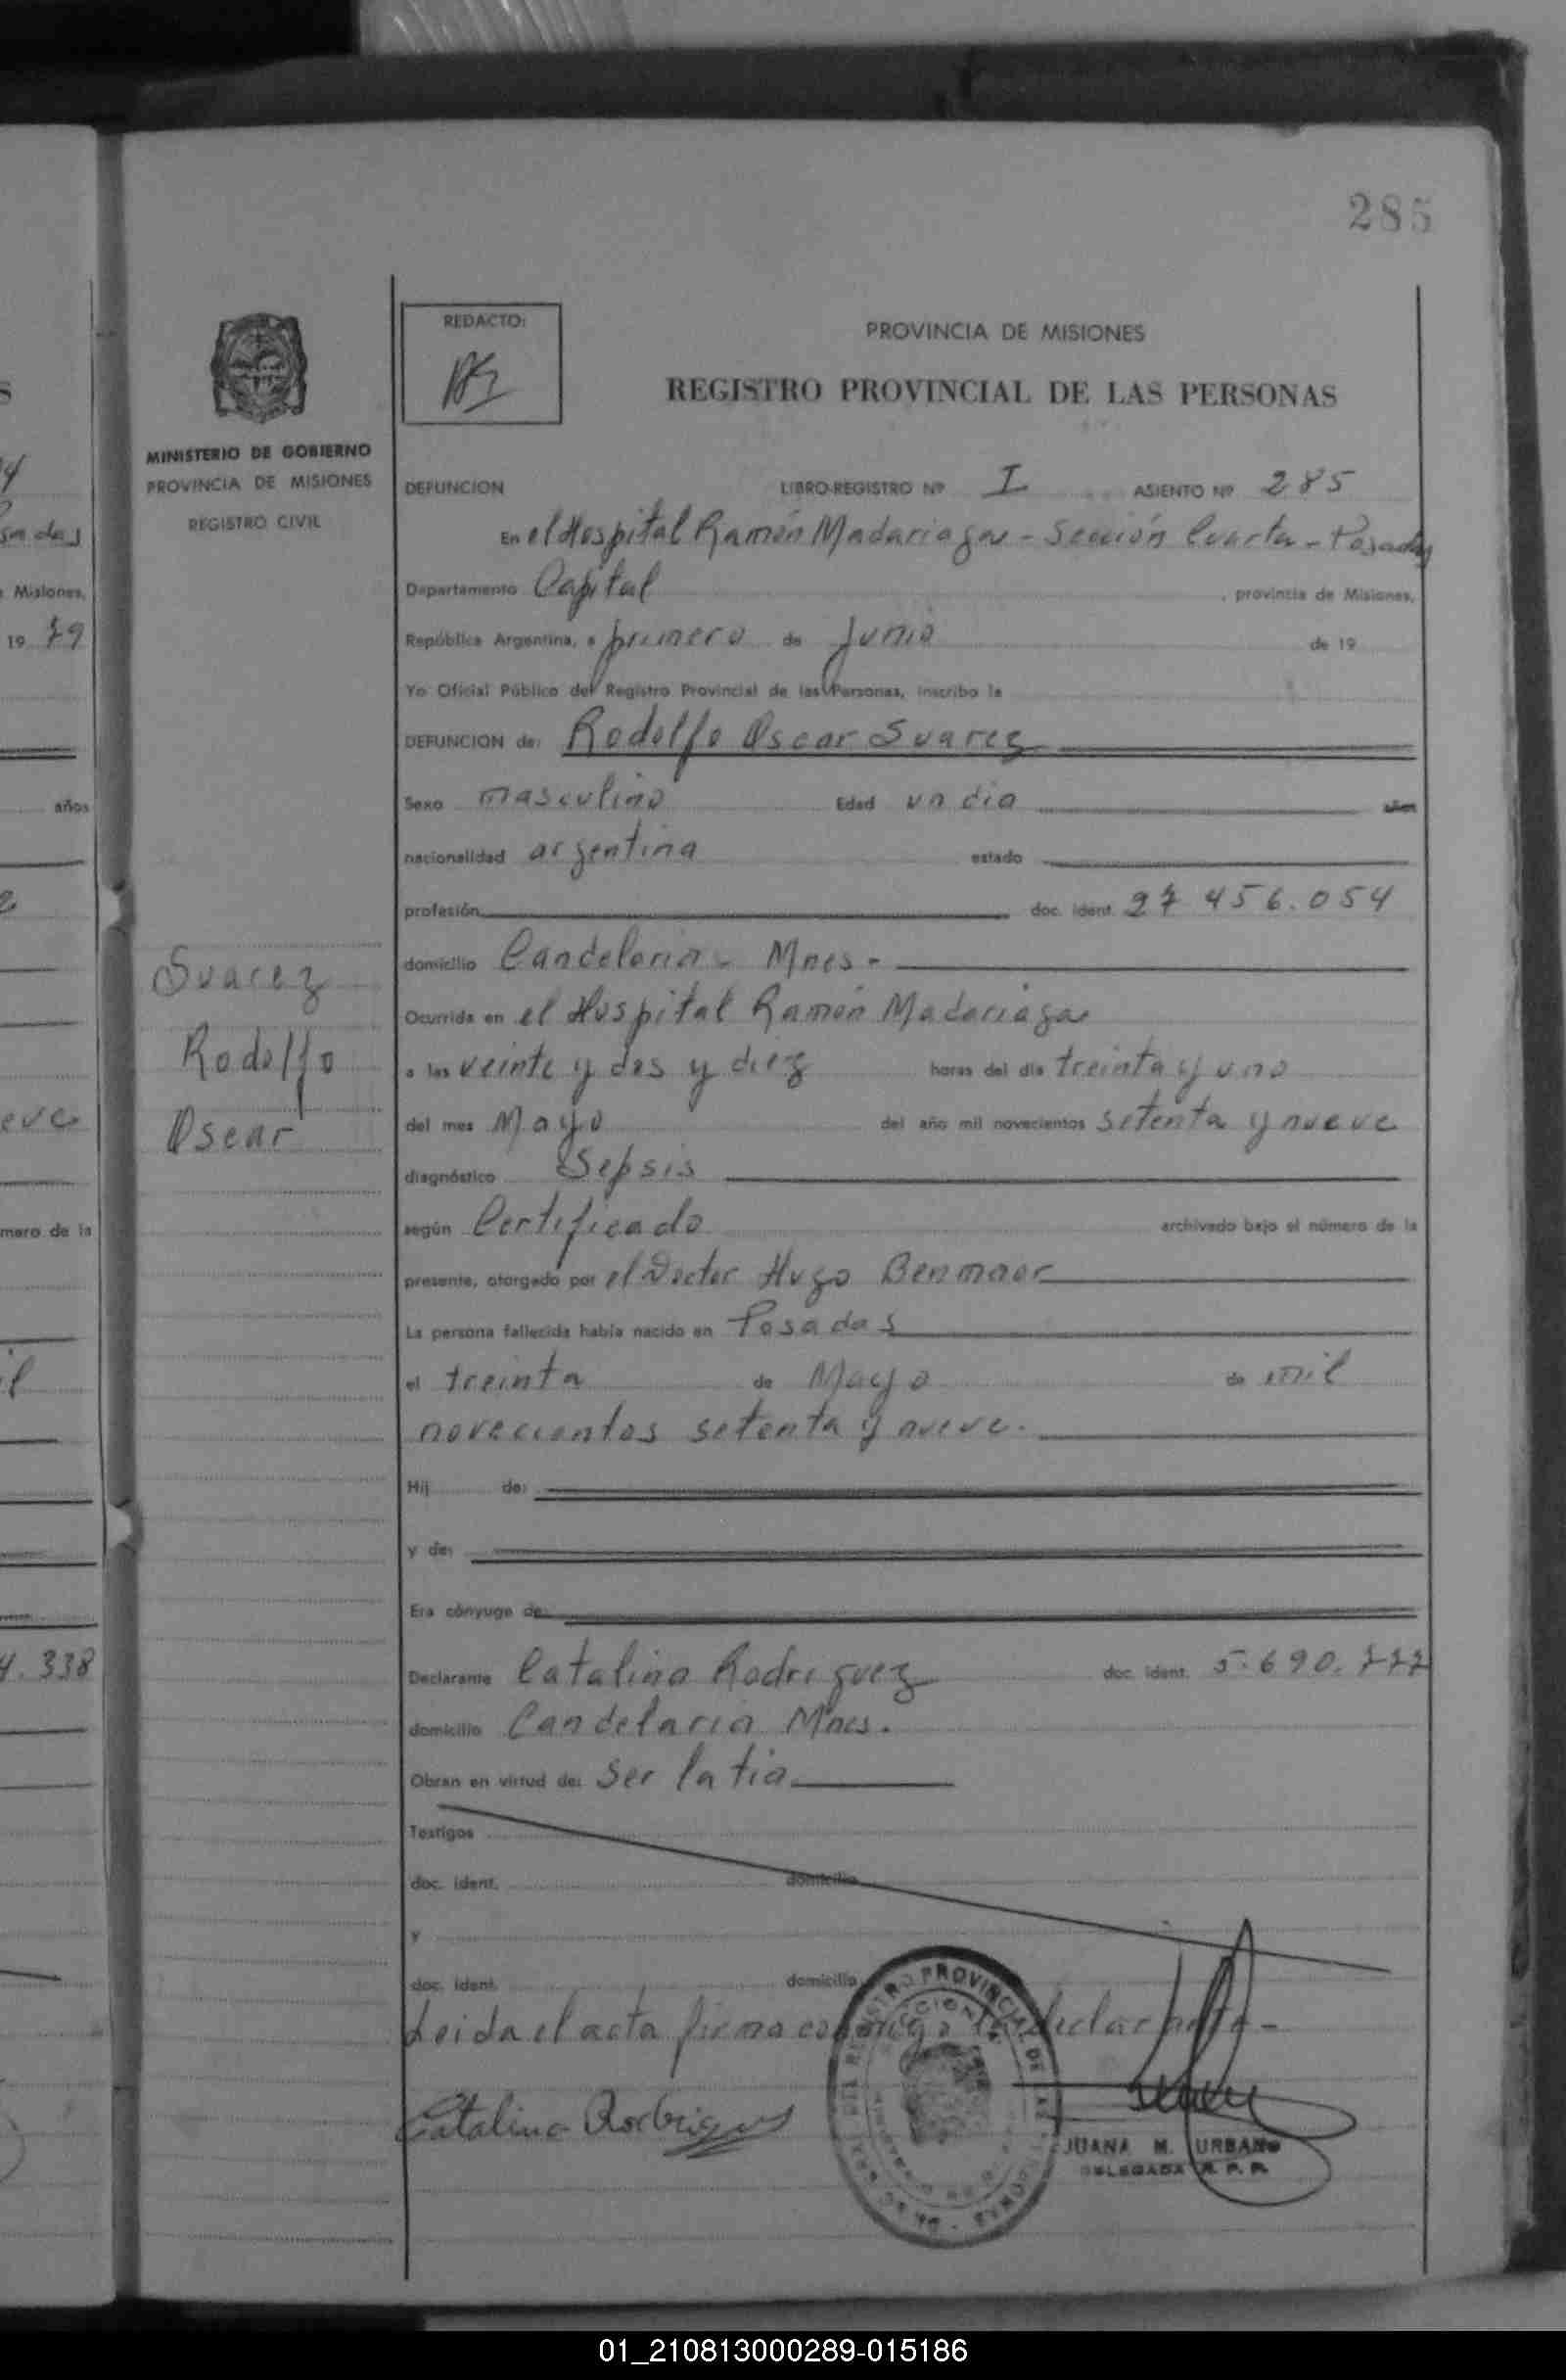 285
REDACTO:
PROVINCIA DE MISIONES
REGISTRO PROVINCIAL DE LAS PERSONAS
MINISTERIO DE GOBIERNO
PROVINCIA DE MISIONES
REGISTRO CIVIL
DEFUNCION LIBRO-REGISTRO Nº I ASIENTO Nº 285
En el Hospital Ramón Madariaga - Sección Cuarta - Posadas
Departamento Capital , provincia de Misiones,
República Argentina, a primero de Junio de 19
Yo Oficial Público del Registro Provincial de las Personas, inscribo la
DEFUNCION de: Rodolfo Oscar Suarez
Sexo masculino Edad un dia años
nacionalidad argentina estado
profesión doc. ident. 27 456.054
domicilio Candelaria - Mnes -
Ocurrida en el Hospital Ramón Madariaga
a las veinte y dos y diez horas del día treinta y uno
del mes Mayo del año mil novecientos setenta y nueve
diagnóstico Sepsis
según Certificado archivado bajo el número de la
presente, otorgado por el Doctor Hugo Benmaor
La persona fallecida había nacido en Posadas
el treinta de Mayo de mil
novecientos setenta y nueve.
Hij de:
y de:
Era cónyuge de:
Declarante Catalina Rodriguez doc. ident. 5.690.777
domicilio Candelaria Mnes.
Obran en virtud de: Ser la tia
Testigos
doc. ident. domicilio
y
doc. ident. domicilio
Leida el acta firma conmigo la declarante -
Catalina Rodriguez
JUANA M. URBANO
DELEGADA R. P. P.
Suarez
Rodolfo
Oscar
sadas
Misiones,
19 79
años
eve
mero de la
4.338
01_210813000289-015186